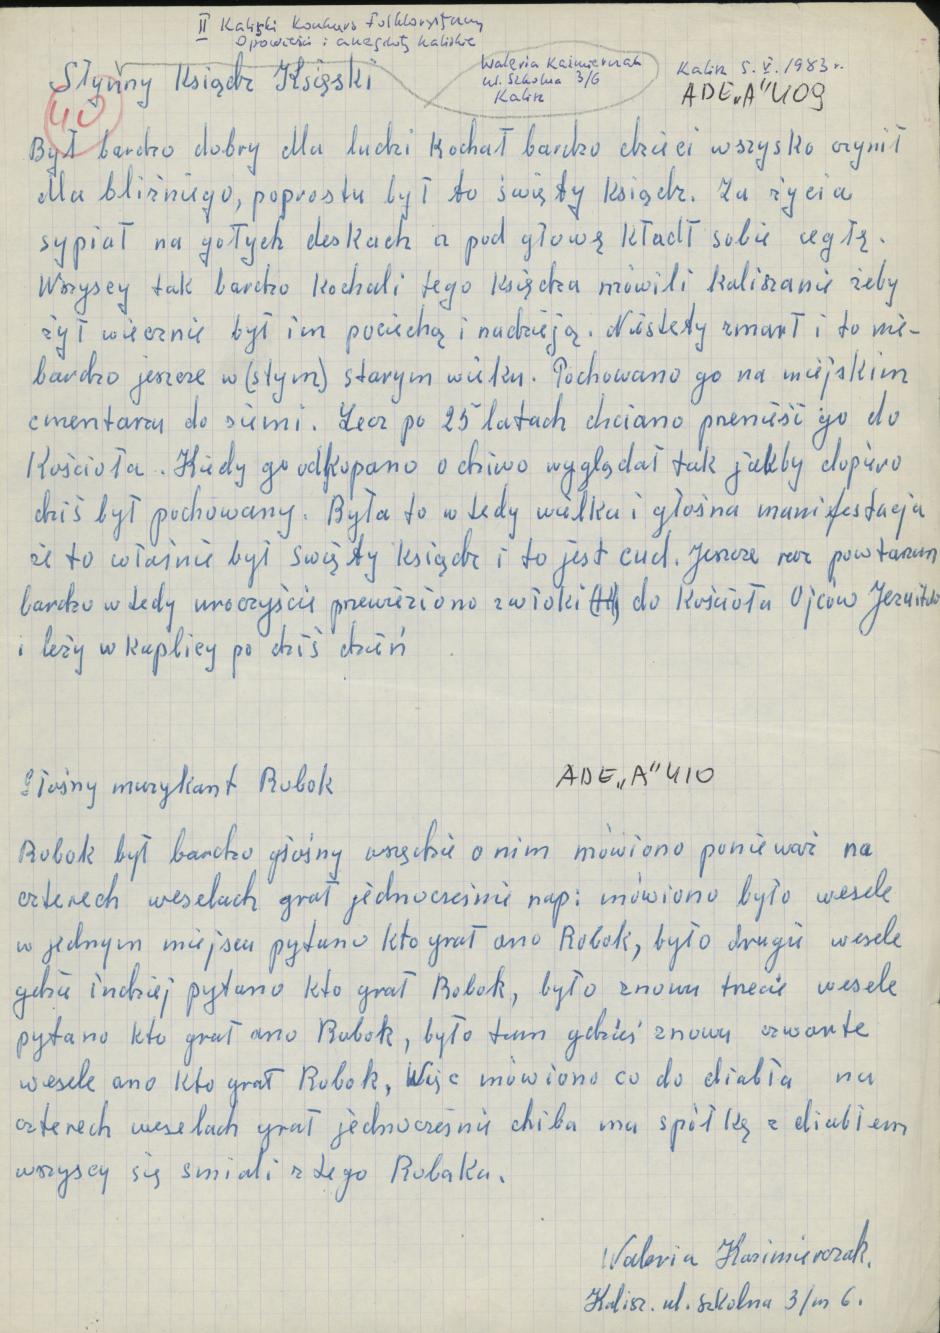 II Kaliski Konkurs Folklorystyczny
Opowieści i anegdoty kaliskie
Waleria Kaźmierczak
ul. Szkolna 3/6
Kalisz
Kalisz 5.V.1983 r.
ADE „A" 409
Słynny Ksiądz Księski
40
Był bardzo dobry dla ludzi Kochał bardzo dzieci wszysko czynił
dla bliźniego, poprostu był to święty Ksiądz. Za życia
sypiał na gołych deskach a pod głowę kładł sobie cegłę.
Wszyscy tak bardzo kochali tego Księdza mówili kaliszanie żeby
żył wiecznie był im pociechą i nadzieją. Niestety zmarł i to nie-
bardzo jeszcze w (stym) starym wieku. Pochowano go na miejskim
cmentarzu do ziemi. Lecz po 25 latach chciano przenieść go do
Kościoła. Kiedy go odkopano o dziwo wyglądał tak jakby dopiero
dziś był pochowany. Była to wtedy wielka i głośna manifestacja
że to właśnie był święty Ksiądz i to jest cud. Jeszcze raz powtarzam
bardzo wtedy uroczyście przewieziono zwłoki do Kościoła Ojców Jezuitów
i leży w Kaplicy po dziś dzień
Głośny muzykant Robok
ADE „A" 410
Robok był bardzo głośny wszędzie o nim mówiono ponieważ na
czterech weselach grał jednocześnie nap: mówiono było wesele
w jednym miejscu pytano kto grał ano Robok, było drugie wesele
gdzie indziej pytano kto grał Robok, było znowu trzecie wesele
pytano kto grał ano Robok, było tam gdzieś znowu czwarte
wesele ano kto grał Robok, Więc mówiono co do diabła na
czterech weselach grał jednocześnie chiba ma spółkę z diabłem
wszyscy się smiali z tego Robaka.
Waleria Kazimierczak.
Kalisz. ul. Szkolna 3/m 6.